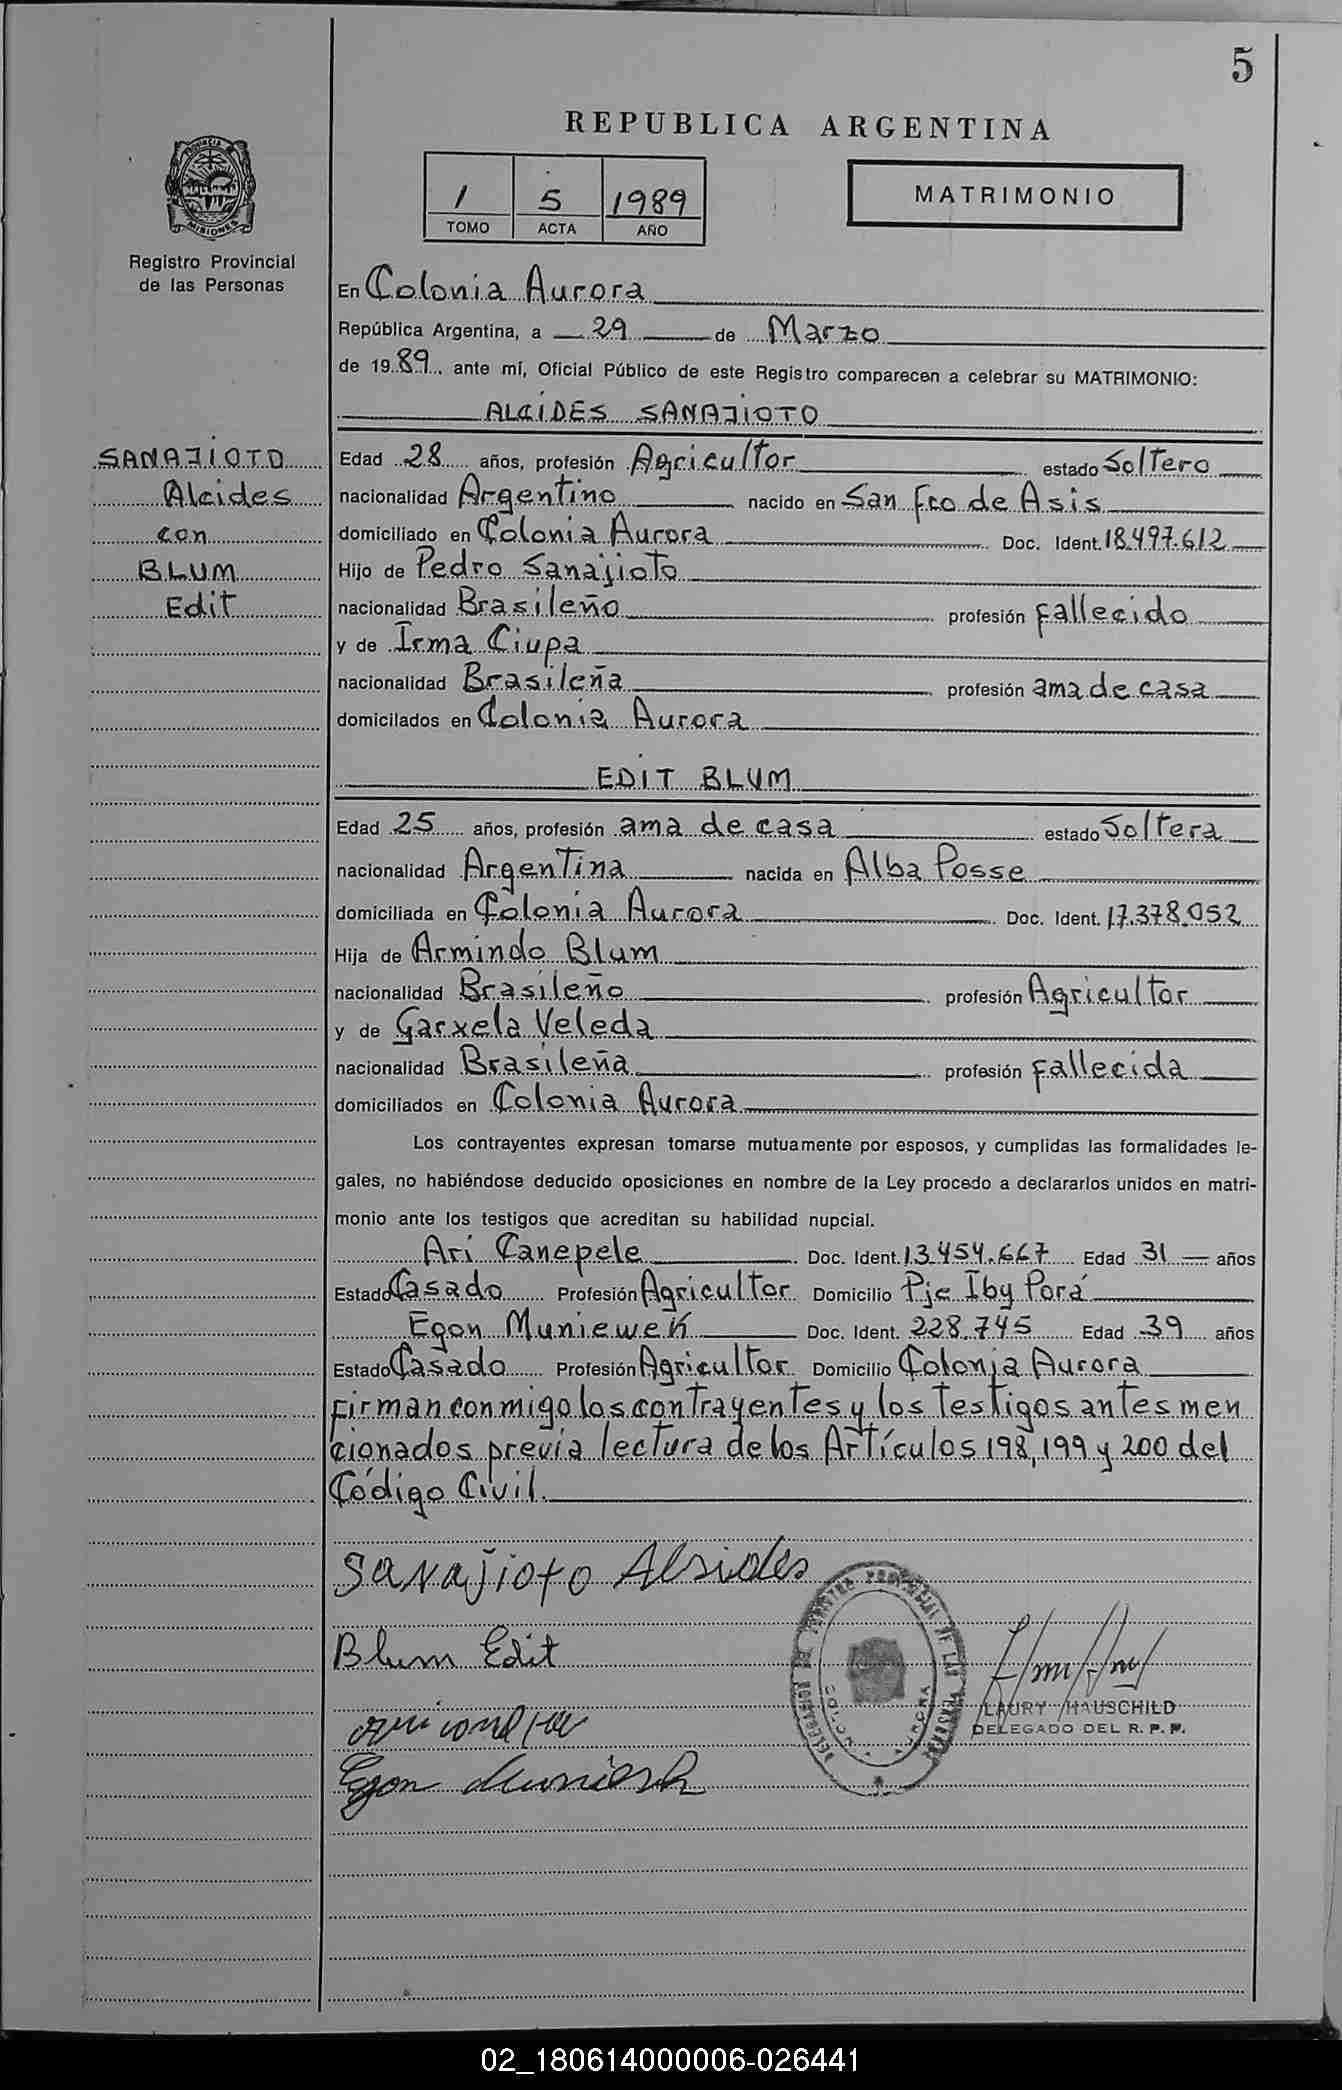 5
REPUBLICA ARGENTINA
1 5 1989
TOMO ACTA AÑO
MATRIMONIO
PROVINCIA
MISIONES
Registro Provincial
de las Personas
SANAJIOTO
Alcides
con
BLUM
Edit
En Colonia Aurora
República Argentina, a 29 de Marzo
de 1989. ante mí, Oficial Público de este Registro comparecen a celebrar su MATRIMONIO:
ALCIDES SANAJIOTO
Edad 28 años, profesión Agricultor estado Soltero
nacionalidad Argentino nacido en San Fco de Asis
domiciliado en Colonia Aurora Doc. Ident. 18.497.612
Hijo de Pedro Sanajioto
nacionalidad Brasileño profesión fallecido
y de Irma Ciupa
nacionalidad Brasileña profesión ama de casa
domicilados en Colonia Aurora
EDIT BLUM
Edad 25 años, profesión ama de casa estado Soltera
nacionalidad Argentina nacida en Alba Posse
domiciliada en Colonia Aurora Doc. Ident. 17.378.052
Hija de Armindo Blum
nacionalidad Brasileño profesión Agricultor
y de Garxela Veleda
nacionalidad Brasileña profesión fallecida
domiciliados en Colonia Aurora
Los contrayentes expresan tomarse mutuamente por esposos, y cumplidas las formalidades le-
gales, no habiéndose deducido oposiciones en nombre de la Ley procedo a declararlos unidos en matri-
monio ante los testigos que acreditan su habilidad nupcial.
Ari Canepele Doc. Ident. 13.454.667 Edad 31 años
Estado Casado Profesión Agricultor Domicilio Pje Iby Porá
Egon Muniewek Doc. Ident. 228.745 Edad 39 años
Estado Casado Profesión Agricultor Domicilio Colonia Aurora
firman conmigo los contrayentes y los testigos antes men
cionados previa lectura de los Artículos 198, 199 y 200 del
Código Civil.
Sanajioto Alsides
Blum Edit
Egon
LAURY HAUSCHILD
DELEGADO DEL R. P. P.
DELEGACION DEL REGISTRO PROVINCIAL DE LAS PERSONAS
AURORA
02_180614000006-026441